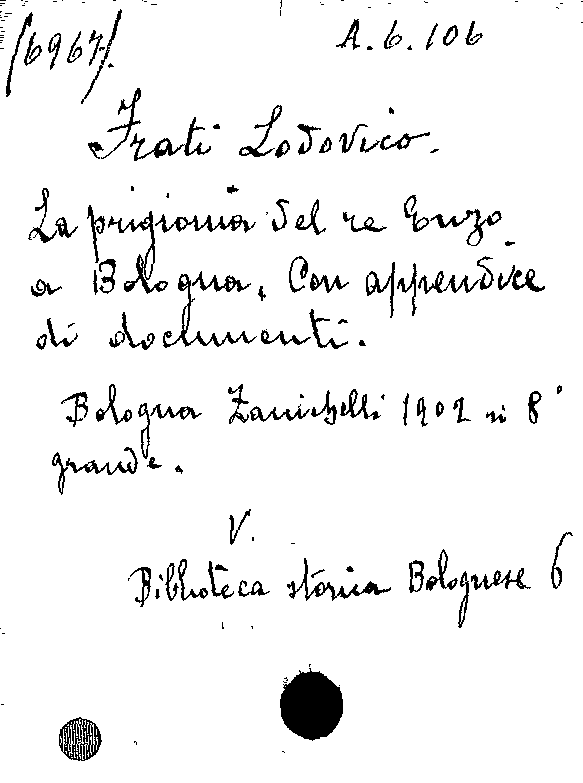 /6967/.
A.6.106
Frati Lodovico.
La prigionia del re Enzo
a Bologna. Con appendice
di documenti.
Bologna Zanichelli 1902 in 8°
grande.
V.
Biblioteca storica Bolognese 6